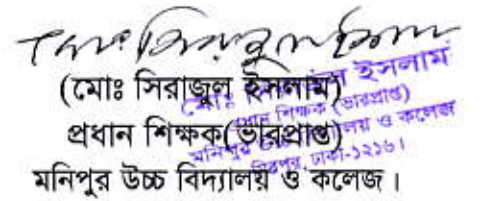 (মোঃ সিরাজুল ইসলাম)
প্রধান শিক্ষক(ভারপ্রাপ্ত)
মনিপুর উচ্চ বিদ্যালয় ও কলেজ।
মোঃ ইসলাম
প্রধান শিক্ষক (ভারপ্রাপ্ত)
মনিপুর ও কলেজ
মিরপুর, ঢাকা-১২১৬।